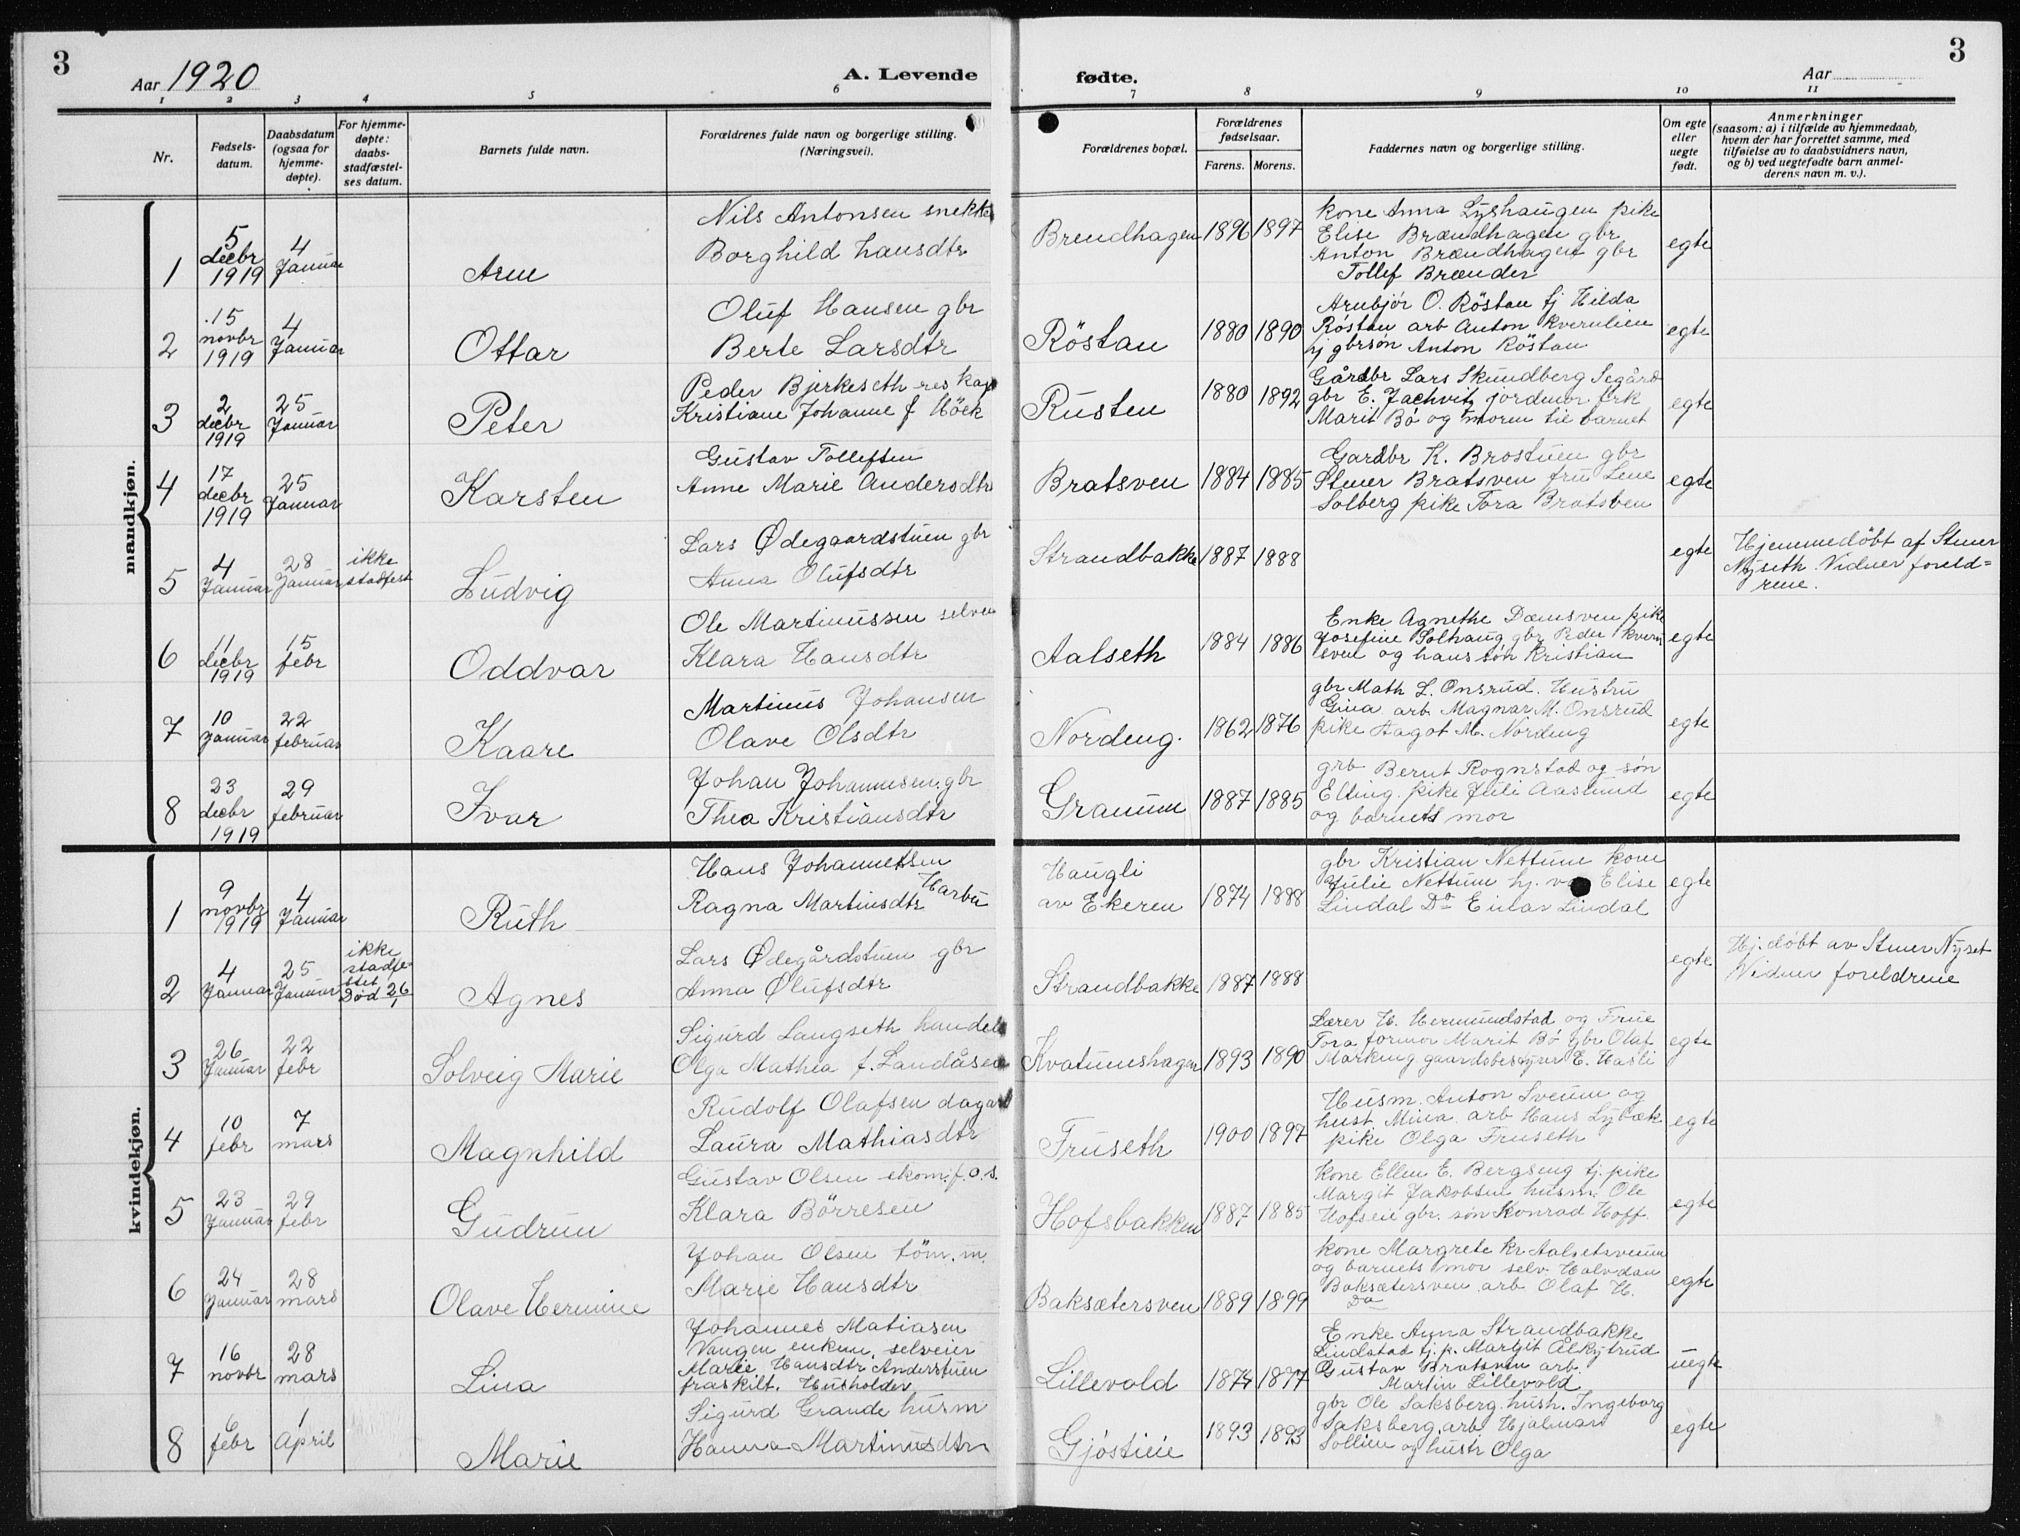 3
Aar 1920
A. Levende
fødte.
Aar
3
1 2 3 4 5 6 7 8 9 10 11
Nr.
Fødsels-
datum.
Daabsdatum
(ogsaa for
hjemme-
døpte).
For hjemme-
døpte:
daabs-
stadfæstel-
ses datum.
Barnets fulde navn.
Forældrenes fulde navn og borgerlige stilling.
(Næringsvei).
Forældrenes bopæl.
Forældrenes
fødselsaar.
Farens. Morens.
Faddernes navn og borgerlige stilling.
Om egte
eller
uegte
født.
Anmerkninger
(saasom: a) i tilfælde av hjemmedaab,
hvem der har forrettet samme, med
tilføielse av to daabsvidners navn,
og b) ved uegtefødte barn anmel-
derens navn m. v.).
mandkjøn.
1
5
decbr
1919
4
Januar
Arne
Nils Antonsen snekke
Borghild Hansdtr
Brendhagen
1896 1897
kone Anna Lyshaugen pike
Elise Brændhagen gbr
Anton Brændhagen gbr
Tollef Brænden
egte
2
15
novbr
1919
4
Januar
Ottar
Oluf Hansen gbr
Berte Larsdtr
Röstan
1880 1890
Arnbjör O. Röstan tj Hilda
Röstan arb Anton kvernlien
hj gbrsøn Anton Röstan
egte
3
2
decbr
1919
25
Januar
Peter
Peder Bjerkeseth res kap
Kristiane Johanne f Höek
Rusten
1880 1892
Gårdbr Lars Skundberg Segård
gbr E. Jachvitz jordmor frk
Marit Bö og moren til barnet
egte
4
17
decbr
1919
25
Januar
Karsten
Gustav Tollefsen
Anne Marie Andersdtr
Bratsven
1884 1885
Gardbr K. Brostuen gbr
Stener Bratsven fru Lene
Solberg pike Tora Bratsven
egte
5
4
Januar
28
Januar
ikke
stadfest
Ludvig
Lars Ødegaardstuen gbr
Anna Olufsdtr
Strandbakke
1887 1888
egte
Hjemmedöbt af Stener
Nyseth. Vidner foreld=
rene.
6
11
decbr
1919
15
febr
Oddvar
Ole Martinussen selvei
Klara Hansdtr
Aalseth
1884 1886
Enke Agnethe Dæmsven pike
Josefine Solhaug gbr Peder kvern
sven og hans søn Kristian
egte
7
10
januar
22
februar
Kaare
Martinus Johansen
Olave Olsdtr
Nordeng.
1862 1876
gbr Math L. Onsrud. Hustru
Gina arb. Magnar M. Onsrud
pike Aagot M. Nordeng
egte
8
23
decbr
1919
29
februar
Ivar
Johan Johannesen. gbr
Thea Kristiansdtr
Granum
1887 1885
grb Bernt Rognstad og søn
Elling. pike Juli Aaslund
og barnets mor
egte
kvindekjøn.
1
9
novbr
1919
4
Januar
Ruth
Hans Johannessen
Harbu
Ragna Martinsdtr
Haugli
av Ekeren
1874 1888
gbr Kristian Nettum kone
Julie Nettum hj. Elise
Lindal Do Einar Lindal
egte
2
4
Januar
25
Januar
ikke
stadfe-
stet
Död 26/1
Agnes
Lars Ødegårdstuen gbr
Anna Olufsdtr
Strandbakke
1887 1888
egte
Hj. döbt av Stener Nyset
Vidner foreldrene
3
26
Januar
22
febr
Solveig Marie
Sigurd Langseth handels
Olga Mathea f. Landåsen
Kvatumshagen
1893 1890
Lærer H. Hermundstad og Frue
Tora formor Marit Bö gbr Olaf
Markeng gaardsbestyrer E. Hasli
egte
4
10
febr
7
mars
Magnhild
Rudolf Olafsen dagarb
Laura Mathiasdtr
Fruseth
1900 1897
Husm. Anton Sveum og
hust Mina arb. Hans Lybæk
pike Olga Fruseth
egte
5
23
Januar
29
febr
Gudrun
Gustav Olsen ekom. f. o. s.
Klara Börresen
Hofsbakken
1887 1885
Kone Ellen E. Bergseng tj. pike
Margit Jakobsen husm Ole
Hofseie gbr. søn Konrad Hoff
egte
6
24
januar
28
mars
Olave Hermine
Johan Olsen töm. m.
Marie Hansdtr
Baksætersven
1889 1899
kone Margrete kr Aalsetsveum
og barnets mor selv Halvdan
Baksætersven arb Olaf H.
Do
egte
7
16
novbr
28
mars
Lina
Johannes Matiasen
Vangen enkem. selveier
Marie Hansdtr Anderstuen
fraskilt. Husholder
Lillevold
1874 1877
Enke Anna Strandbakke
Lindstad tj. p. Margit Alkytrud
Gustav Bratsven arb.
Martin Lillevold
uegte
8
6
febr
1
April
Marie
Sigurd Grande husm
Hanna Martinusdtr
Gjöstiie
1893 1893
gbr Ole Saksberg. hush. Ingeborg
Saksberg. arb. Hjalmar
Sollien og hustr Olga
egte